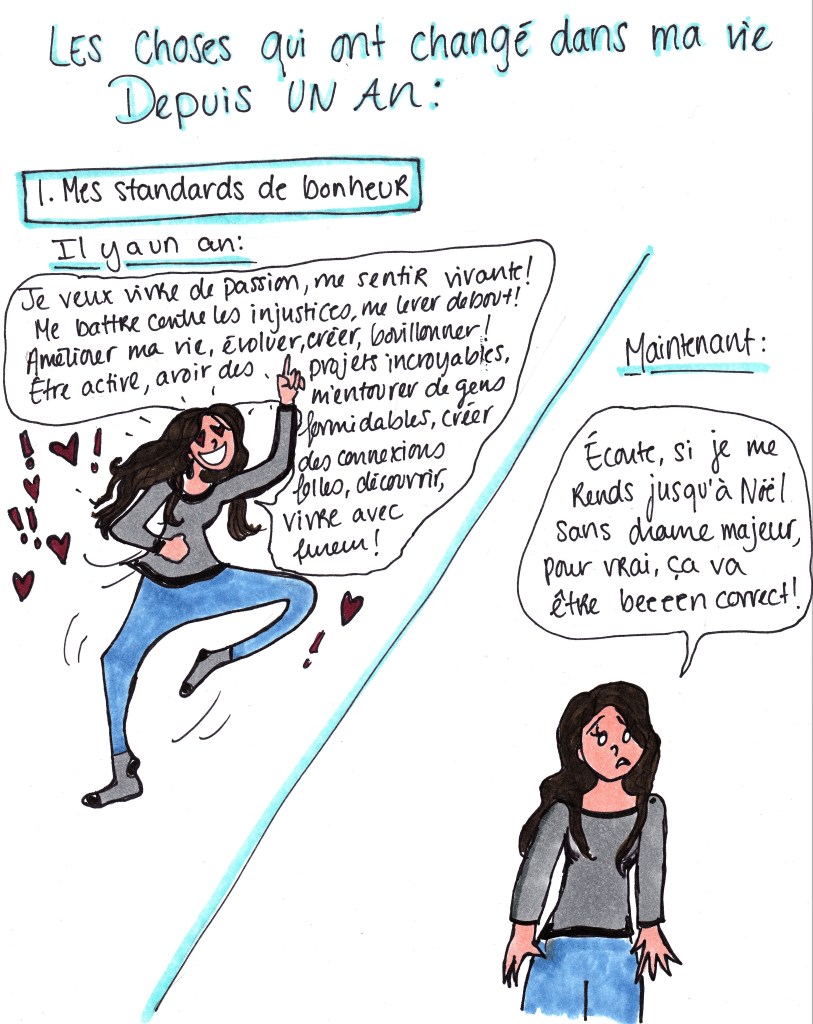 Les choses qui ont changé dans ma vie
Depuis un an:
1. Mes standards de bonheur
Il y a un an:
Je veux vivre de passion, me sentir vivante!
Me battre contre les injustices, me lever debout!
Améliorer ma vie, évoluer, créer, bouillonner!
Être active, avoir des projets incroyables,
m'entourer de gens
formidables, créer
des connexions
folles, découvrir,
vivre avec
fureur!
Maintenant:
Écoute, si je me
rends jusqu'à Noël
sans drame majeur,
pour vrai, ça va
être beeeen correct!